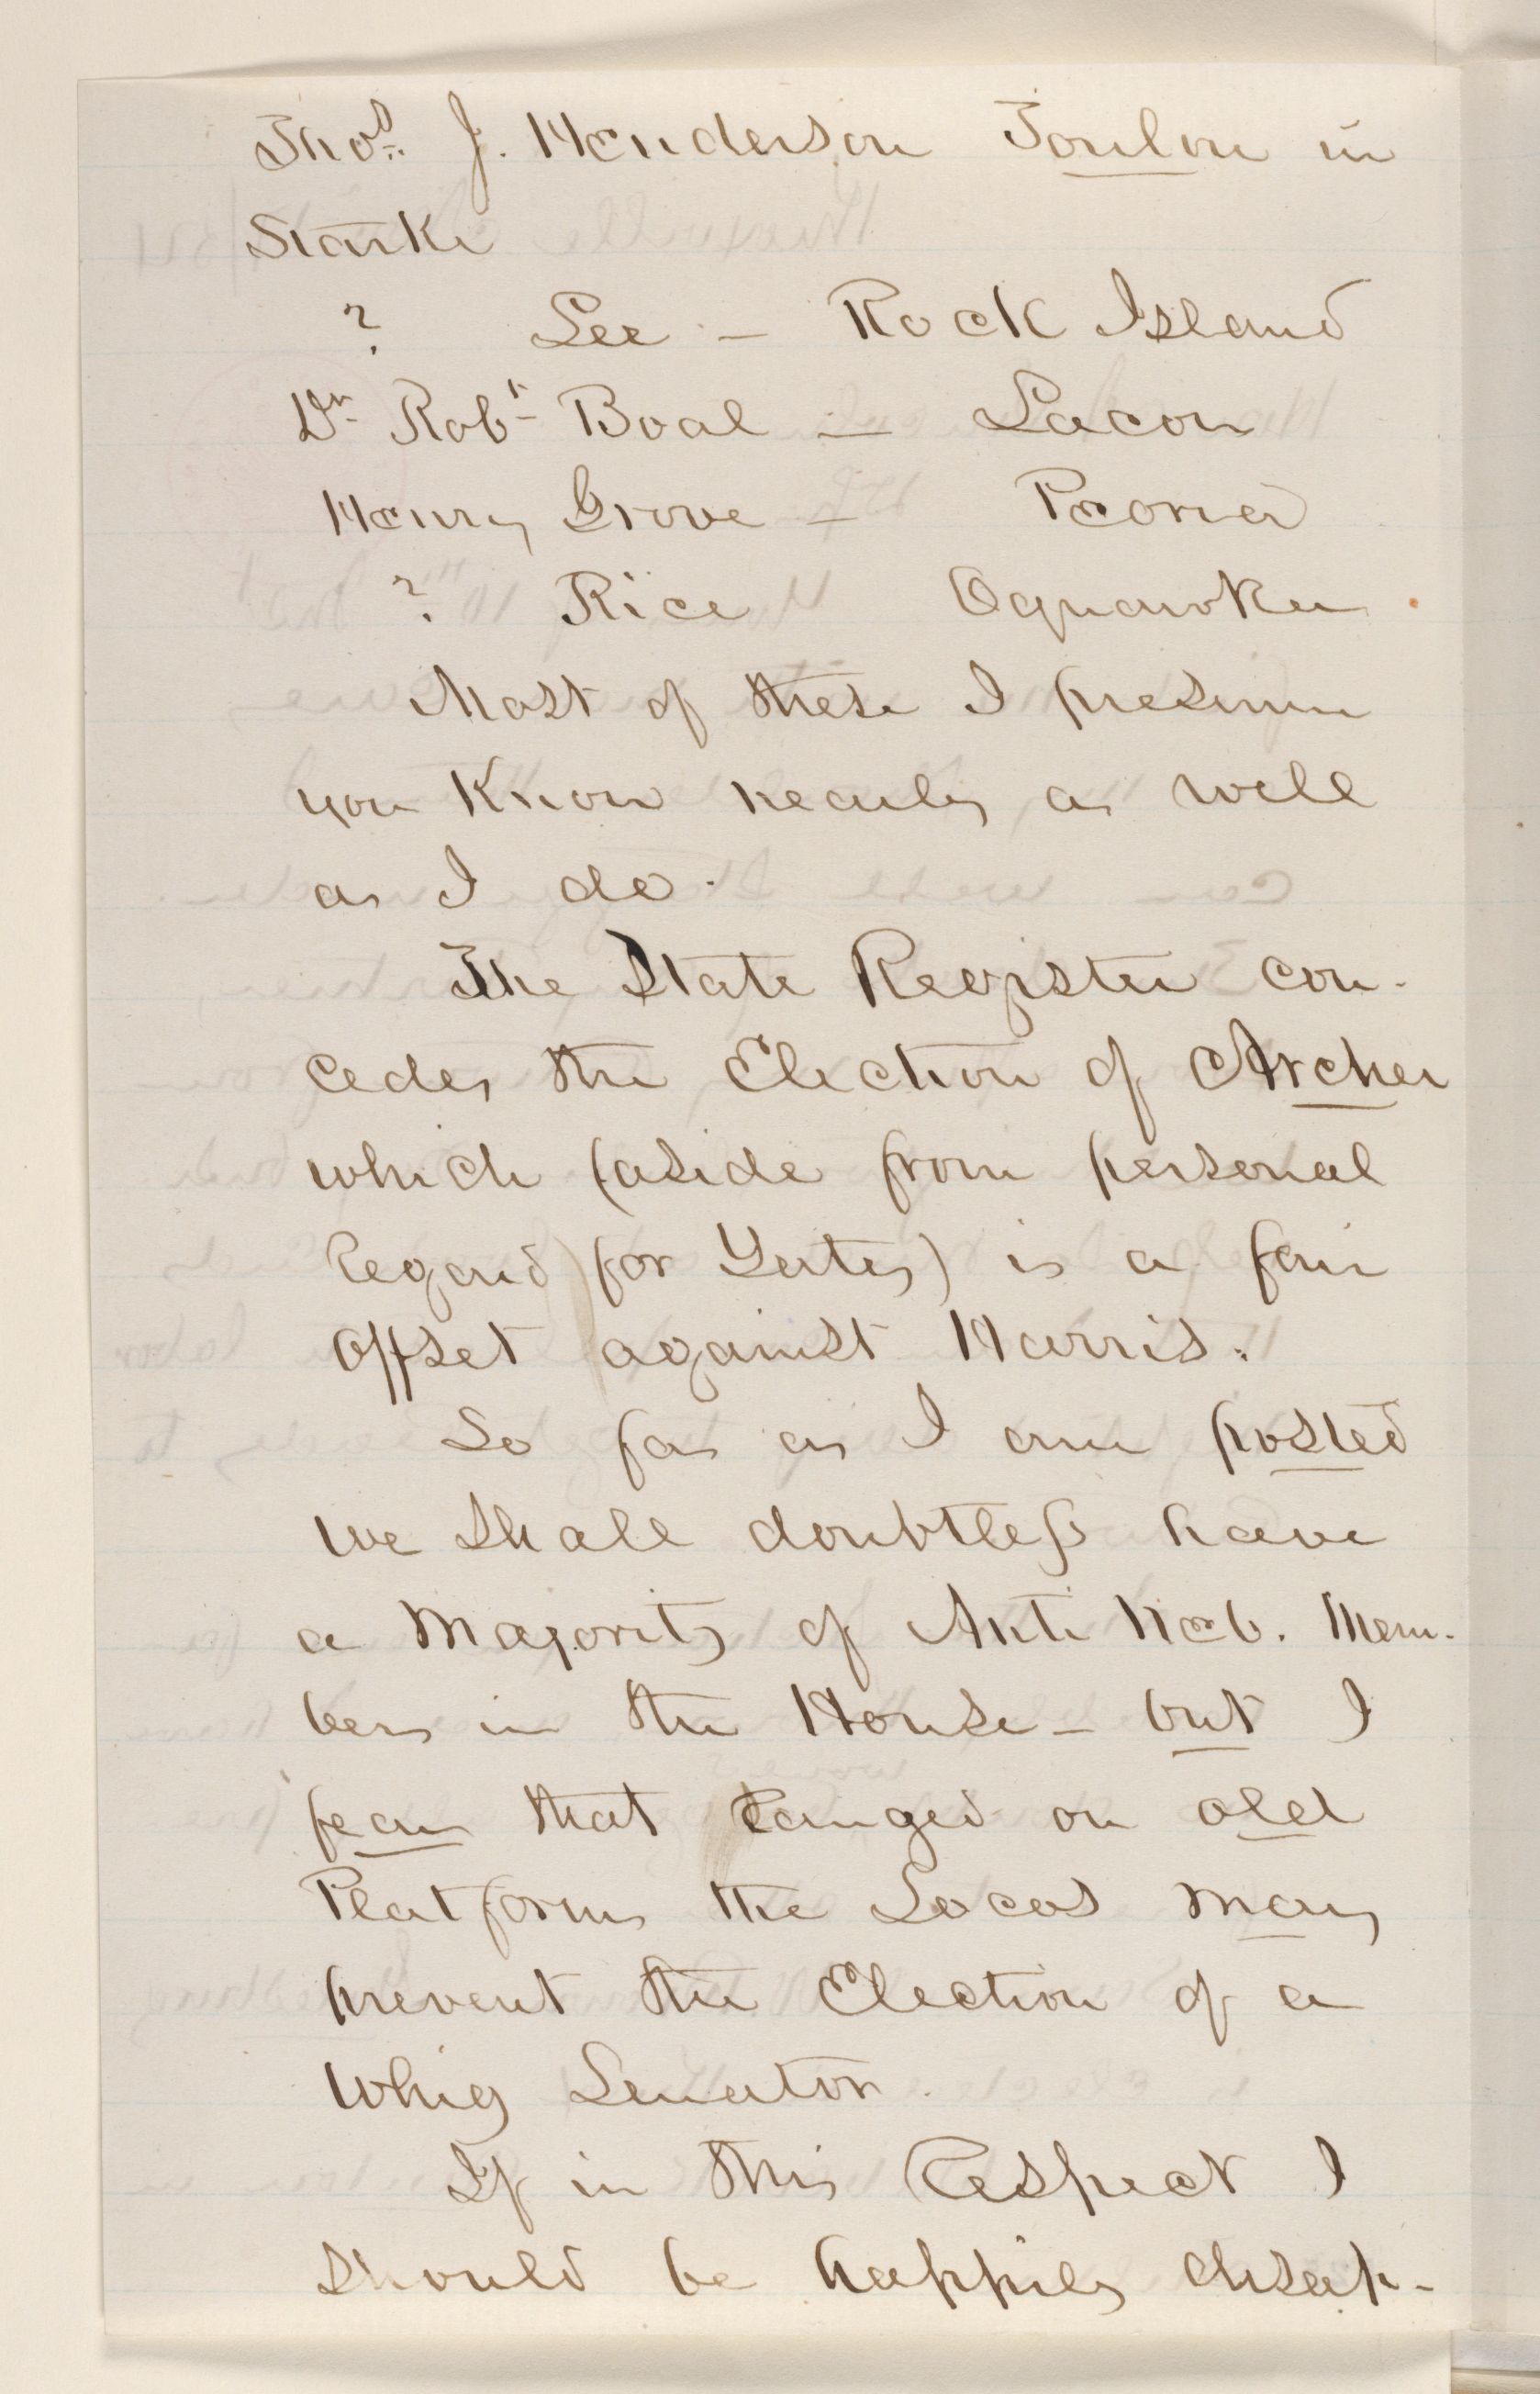 Thos. J. Henderson Toulon in
Starke
? Lee - Rock Island
Dr Robt Boal - Lacon
Henry Grove - Peoria
? Rice Oquawka
Most of these I presume
you Know nearly as well
as I do.
The State Register con-
cedes the Election of Archer
which (aside from personal
Regard for Yates) is a fair
offset against Harris.
So far as I am posted
we shall doubtless have
a Majority of Anti Neb. Mem-
bers in the House - but I
fear that Ranged on old
Platforms the Locos may
prevent the Election of a
Whig Senator.
If in this Respect I
should be happily disap-